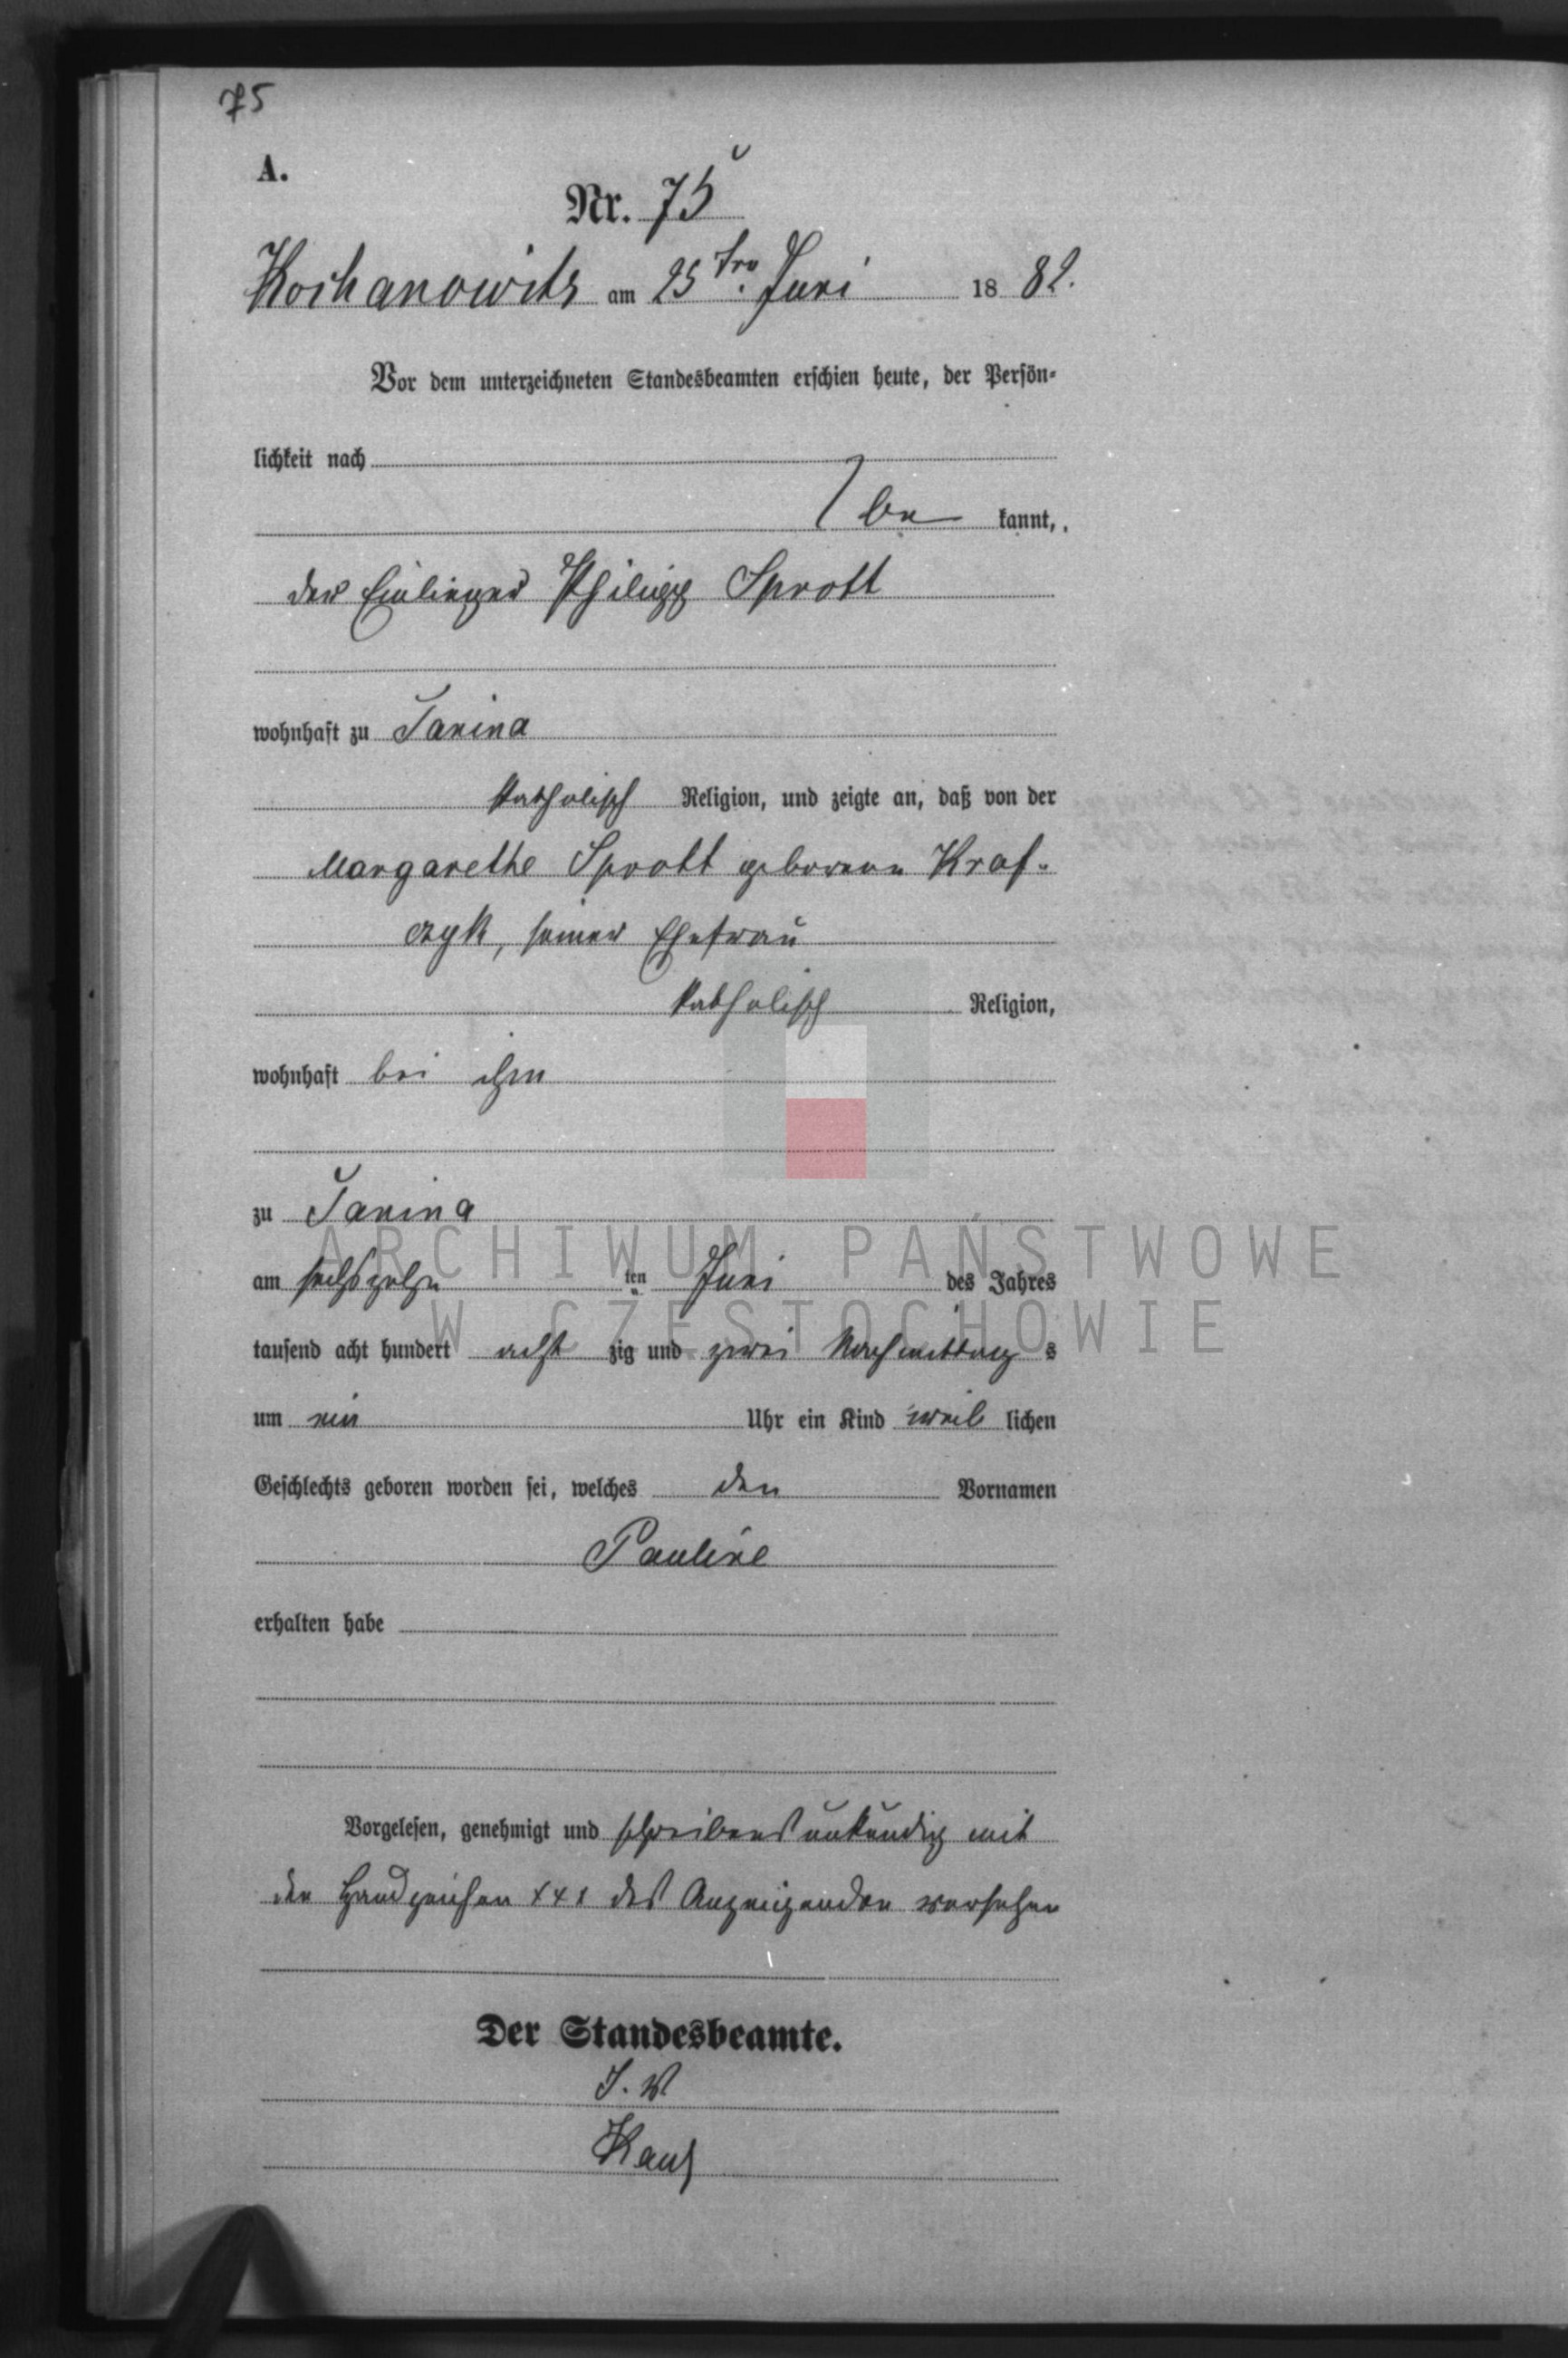 75
A.
Nr. 75
Kochanowitz am 25ten Juni 1882.
Vor dem unterzeichneten Standesbeamten erschien heute, der Persön-
lichkeit nach
be kannt,
der Einlieger Philipp Sprott
wohnhaft zu Tanina
katholisch Religion, und zeigte an, daß von der
Margarethe Sprott geborene Kraf-
czyk, seiner Ehefrau
katholisch Religion,
wohnhaft bei ihm
zu Tanina
am sechszehn ten Juni des Jahres
tausend acht hundert acht zig und zwei Nachmittag s
um ein Uhr ein Kind weib lichen
Geschlechts geboren worden sei, welches den Vornamen
Pauline
erhalten habe
Vorgelesen, genehmigt und schreibensunkundig mit
den Handzeichen xxx des Anzeigenden versehen
Der Standesbeamte.
I. V
ARCHIWUM PAŃSTWOWE
W CZĘSTOCHOWIE